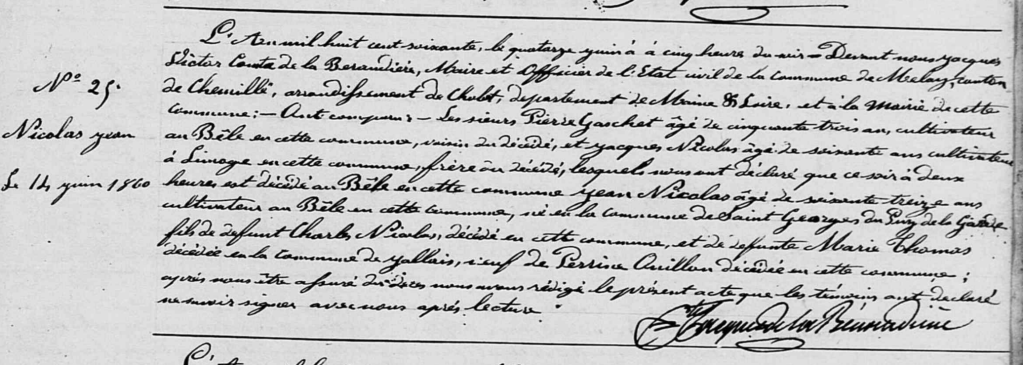 L'An mil huit cent soixante, le quatorze yuin à à cinq heures du soir Devant nous yacques
Victor Comte de la Beraudière, Maire et Officier de l'Etat civil de la Commune de Melay, canton
de Chemillé, arrondissement de Cholet, département de Maine & Loire, et à la Mairie de cette
Nº 25.
commune : — Ont comparu : — Les sieurs Pierre Gaschet âgé de cinquante trois ans, cultivateur
Nicolas yean
au Bêle en cette commune, voisin du décédé, et yacques Nicolas âgé de soixante ans cultivateur
à Limoge en cette commune, frère du décédé, lesquels nous ont déclaré que ce soir à deux
Le 14 yuin 1860
heures est décédé au Bêle en cette commune yean Nicolas âgé de soixante treize ans
cultivateur au Bêle en cette commune, né en la commune de Saint Georges du Puy de la Garde
fils de defunt Charles Nicolas, décédé en cette commune, et de defunte Marie Thomas
décédée en la Commune de yallais, veuf de Perrine Ouillon décédée en cette commune ;
après nous être assuré du décès nous avons rédigé le présent acte que les témoins ont déclaré
ne savoir signer avec nous après lecture
L'